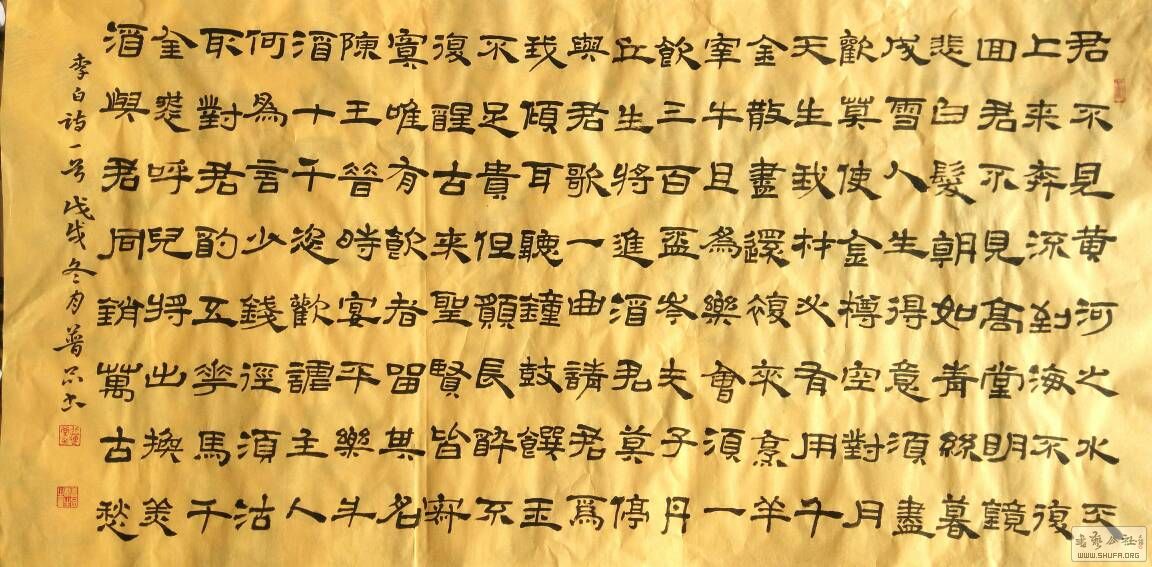 君不見黃河之水天
上来奔流到海不復
回君不見高堂明鏡
悲白髮朝如青絲暮
成雪人生得意須盡
歡莫使金樽空對月
天生我材必有用千
金散盡還複來烹羊
宰牛且為樂會須一
飲三百盃岑夫子丹
丘生將進酒君莫停
與君歌一曲請君為
我傾耳聽鐘鼓饌玉
不足貴但願長醉不
復醒古来聖賢皆寂
寞唯有飲者留其名
陳王昔時宴平樂斗
酒十千恣歡謔主人
何為言少錢徑須沽
取對君酌五花馬千
金裘呼兒將出換美
酒與君同銷萬古愁
李白詩一首戊戌冬月普品書
WWW.SHUFA.ORG